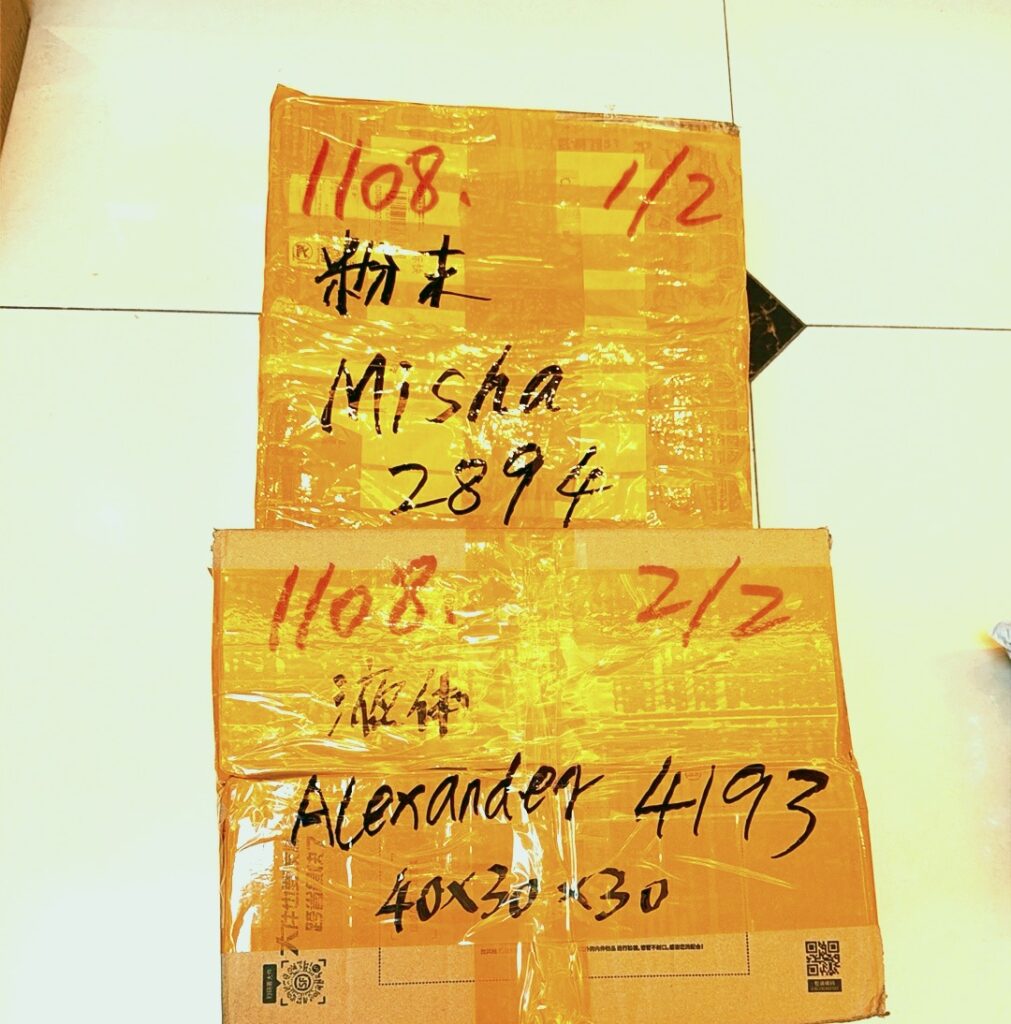 1108. 1/2
粉末
Misha
2894
1108. 2/2
液体
Alexander 4193
40x30x30